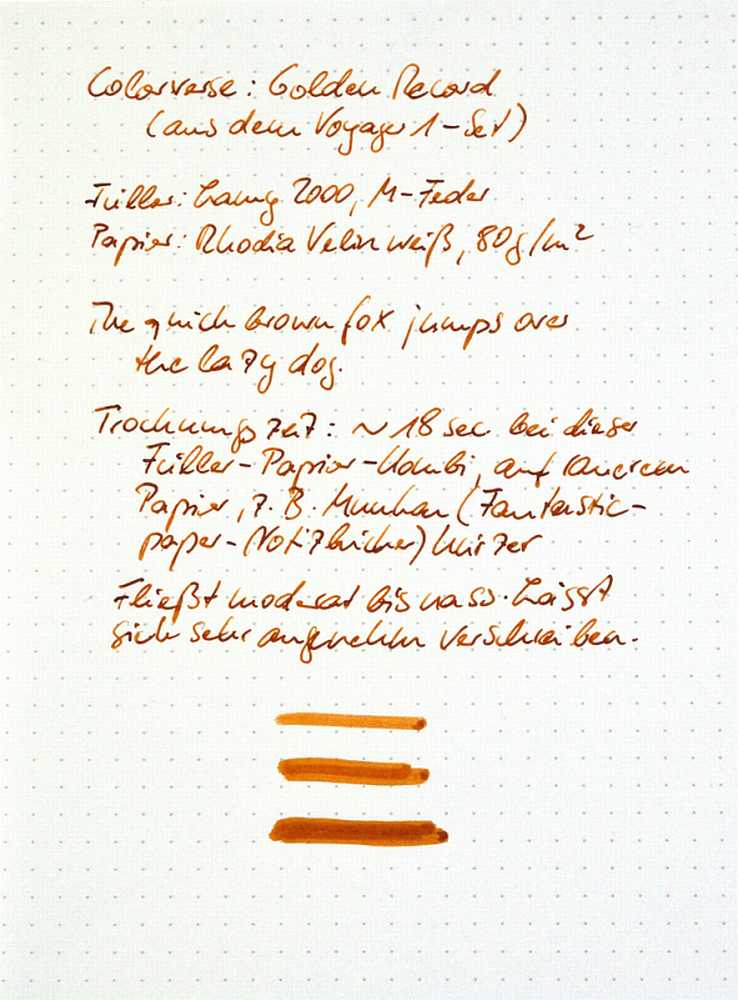 Colorverse: Golden Record
(aus dem Voyager 1-Set)
Füller: Lamy 2000, M-Feder
Papier: Rhodia Velin weiß, 80g/m²
The quick brown fox jumps over
the lazy dog.
Trocknungszeit: ~18 sec bei dieser
Füller-Papier-Kombi, auf
Papier, z.B. (Fantastic-
paper-Notizbücher) kürzer
Fließt moderat bis nass. Lässt
sich sehr angenehm verschreiben.